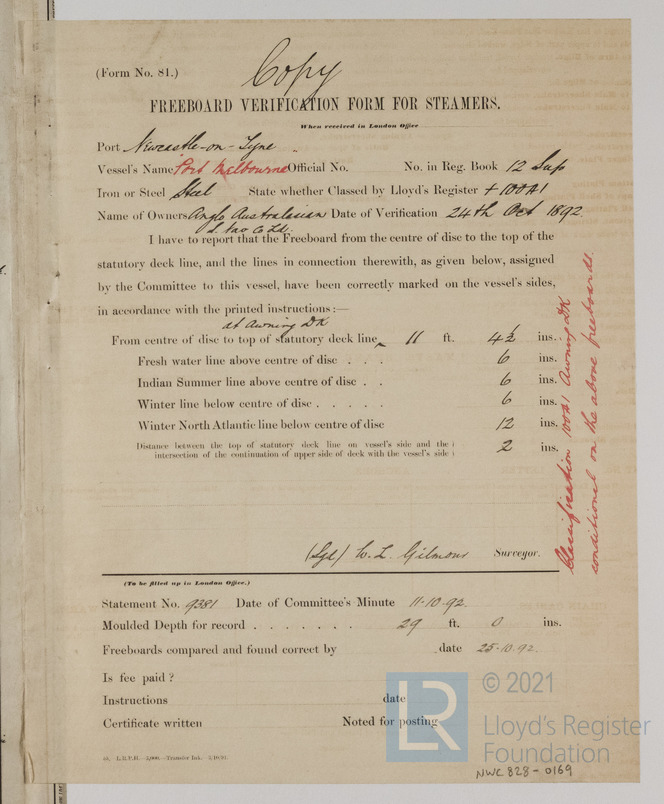 (Form No. 81.)
Copy
FREEBOARD VERIFICATION FORM FOR STEAMERS.
When received in London Office
Port Newcastle-on-Tyne
Vessel's Name Port Melbourne Official No. No. in Reg. Book 12 Sup
Iron or Steel Steel State whether Classed by Lloyd's Register + 100A1
Name of Owners Anglo Australasian Date of Verification 24th Oct 1892
S. Nav Co Ld.
I have to report that the Freeboard from the centre of disc to the top of the
statutory deck line, and the lines in connection therewith, as given below, assigned
by the Committee to this vessel, have been correctly marked on the vessel's sides,
in accordance with the printed instructions:—
at Awning DK
From centre of disc to top of statutory deck line 11 ft. 4½ ins.
Fresh water line above centre of disc . . . 6 ins.
Indian Summer line above centre of disc . . 6 ins.
Winter line below centre of disc . . . . . 6 ins.
Winter North Atlantic line below centre of disc 12 ins.
Distance between the top of statutory deck line on vessel's side and the
intersection of the continuation of upper side of deck with the vessel's side 2 ins.
Classification 100A1 Awning DK
conditional on the above freeboards.
(Sgd) W. L. Gilmour Surveyor.
(To be filled up in London Office.)
Statement No. 9381 Date of Committee's Minute 11-10-92.
Moulded Depth for record . . . . . . . 29 ft. 0 ins.
Freeboards compared and found correct by date 25-10-92.
Is fee paid ?
Instructions date
Certificate written Noted for posting
60, L.R.P.H.—2,000.—Transfer Ink.—3/10/91.
LR
© 2021
Lloyd's Register
Foundation
NWC 828-0169